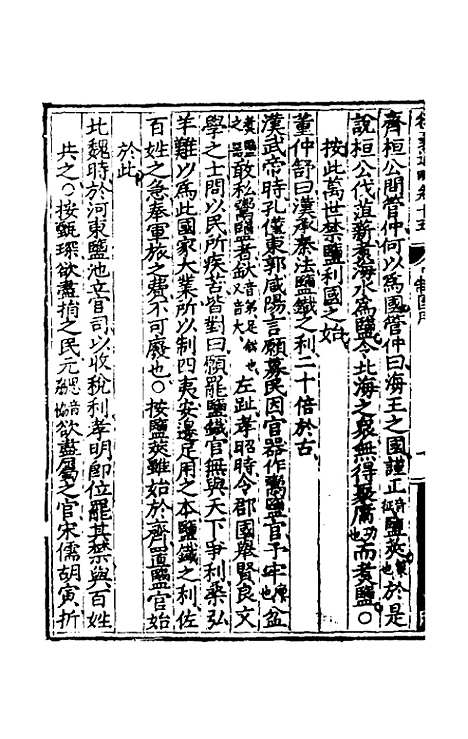 齊桓公問管仲何以爲國管仲曰海王之國謹正鹽筴於是
說桓公伐菹薪煮海水爲鹽令北海之衆無得聚庸功也而煮鹽〇
按此萬世禁鹽利國之始
董仲舒曰漢承秦法鹽鐵之利二十倍於古
漢武帝時孔僅東郭咸陽言願募民因官器作鬻鹽官予牢盆
敢私鬻鹽者釱左趾孝昭時令郡國舉賢良文
學之士問以民所疾苦皆對曰願罷鹽鐵官無與天下爭利桑弘
羊難以爲此國家大業所以制四夷安邊足用之本鹽鐵之利佐
百姓之急奉軍旅之費不可廢也〇按鹽筴雖始於齊置鹽官始
於此
北魏時於河東鹽池立官司以收稅利孝明卽位罷其禁與百姓
共之〇按甄琛欲盡捐之民元勰欲盡屬之官宋儒胡寅折